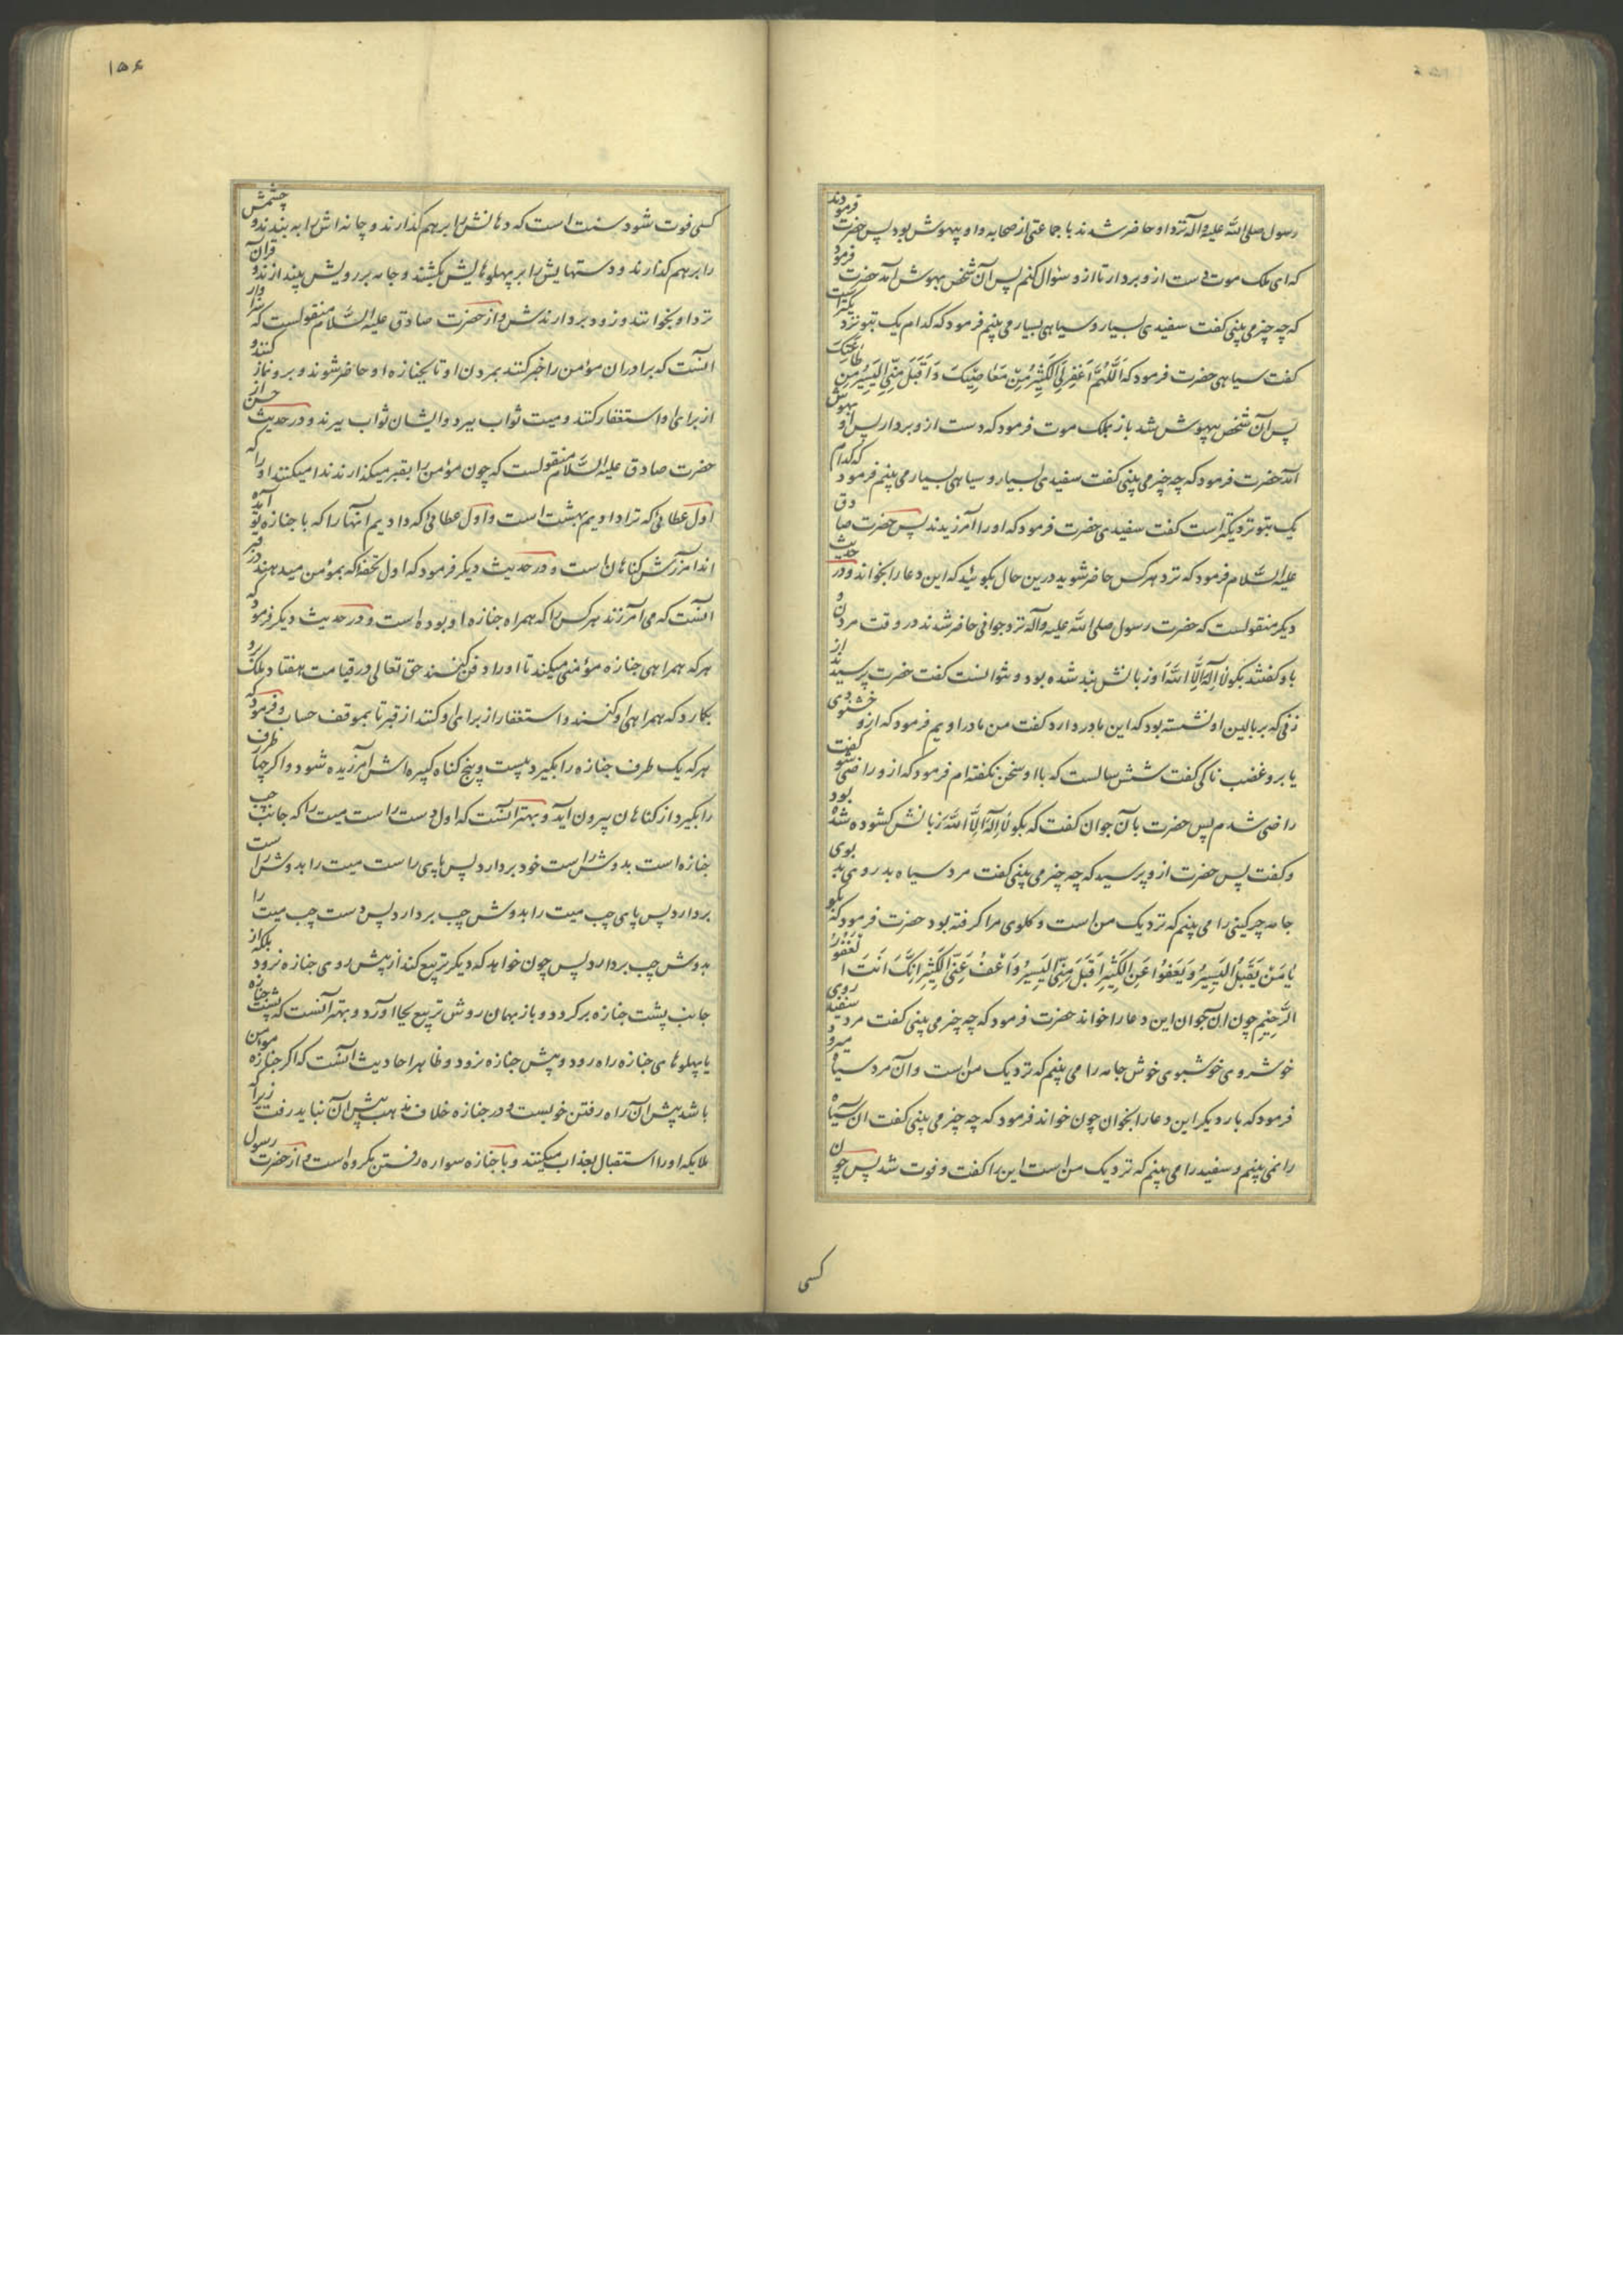 رسول صلی الله علیه وآله نزد او حاضر شدند با جماعتی از صحابه و او بیهوش بود پس حضرت فرمودند
که ای ملک موت دست ازو بردار تا ازو سئوال کنم پس آن شخص بهوش آمد حضرت فرمود
که چه چیز می بینی گفت سفیدی بسیار و سیاهی بسیار می بینم فرمود که کدام یک بتو نزدیکتر است
گفت سیاهی حضرت فرمود که اَللّهُمَّ اغْفِرلِیَ الْکَثیرَ مِنْ مَعاصِیکَ وَاقْبَلْ مِنِّی الْیَسیرَ مِنْ طاعَتِکَ
پس آن شخص بیهوش شد باز بملک موت فرمود که دست ازو بردار پس او بهوش
آمد حضرت فرمود که چه چیز می بینی گفت سفیدی بسیار و سیاهی بسیار می بینم فرمود که کدام
یک بتو نزدیکتر است گفت سفیدی حضرت فرمود که او را آمرزیدند پس حضرت صادق
علیه السلام فرمود که نزد هر کس حاضر شوید درین حال بگوئید که این دعا را بخواند و در حدیث
دیگر منقولست که حضرت رسول صلی الله علیه وآله نزد جوانی حاضر شدند در وقت مردن و
باو گفتند بگو لا اِلهَ اِلاَّ اللهُ او زبانش بند شده بود و نتوانست گفت حضرت پرسیدند از
زنی که بر بالین او نشسته بود که این مادر دارد گفت من مادر اویم فرمود که ازو خشنودی
یا برو غضب ناکی گفت شش سالست که با او سخن نگفته ام فرمود که ازو راضی شو گفت
راضی شدم پس حضرت بآن جوان گفت که بگو لا اِلهَ اِلاَّ اللهُ زبانش گشوده شده بود
و گفت پس حضرت ازو پرسید که چه چیز می بینی گفت مرد سیاه بدروی بدبوی
جامه چرکینی را می بینم که نزدیک من است و گلوی مرا گرفته بود حضرت فرمود که بگو
یا مَنْ یَقْبَلُ الْیَسیرَ وَیَعْفُوا عَنِ الْکَثیرِ اِقْبَلْ مِنِّی الْیَسیرَ وَاعْفُ عَنِّی الْکَثیرَ اِنَّکَ اَنْتَ الغَفُورُ
الرَّحیمِ چون آن جوان این دعا را خواند حضرت فرمود که چه چیز می بینی گفت مرد سفید روی
خوشروی خوشبوی خوش جامه را می بینم که نزدیک من است و آن مرد سیاه میرود
فرمود که بار دیگر این دعا را بخوان چون خواند فرمود که چه چیز می بینی گفت آن سیاه
را نمی بینم و سفید را می بینم که نزدیک من است این را گفت و فوت شد پس چون
کسی
۱۵۶
کسی فوت شود سنت است که دهانش را بر هم گذارند و چانه اش را به بندند و چشمش
را بر هم گذارند و دستهایش را بر پهلوهایش بکشند و جامه بر رویش بیندازند و قرآن
نزد او بخوانند و زود بردارندش و از حضرت صادق علیه السلام منقولست که سزاوار
آنست که برادران مؤمن را خبر کنند بمردن او تا بجنازه او حاضر شوند و برو نماز کنند و
از برای او استغفار کنند و میت ثواب ببرد و ایشان ثواب ببرند و در حدیث حسن از
حضرت صادق علیه السلام منقولست که چون مؤمن را بقبر میگذارند ندا میکنند او را که
اول عطائی که ترا دادیم بهشت است و اول عطائی که دادیم آنها را که با جنازه تو آمده
اند آمرزش گناهان است و در حدیث دیگر فرمود که اول تحفه که بمؤمن میدهند در قبر
آنست که می آمرزند هر کس را که همراه جنازه او بوده است و در حدیث دیگر فرمود که
هر که همراهی جنازه مؤمنی میکند تا او را دفن کنند حق تعالی در قیامت هفتاد ملک برو
بگمارد که همراهی او کنند و استغفار از برای او کنند از قبر تا بموقف حساب و فرمود که
هر که یک طرف جنازه را بگیرد بیست و پنج گناه کبیره اش آمرزیده شود و اگر چهار طرف
را بگیرد از گناهان بیرون آید و بهتر آنست که اول دست راست میت را که جانب چپ
جنازه است بدوش راست خود بردارد پس پای راست میت را بدوش راست
بردارد پس پای چپ میت را بدوش چپ بردارد پس دست چپ میت را
بدوش چپ بردارد پس چون خواهد که دیگر تربیع کند از پیش روی جنازه نرود بلکه از
جانب پشت جنازه برگردد و باز بهمان روش تربیع بجا آورد و بهتر آنست که پشت جنازه
یا پهلوهای جنازه راه رود و پیش جنازه نرود و ظاهر احادیث آنست که اگر جنازه مومن
باشد پیش آن راه رفتن خوبست و در جنازه خلاف مذهب پیش آن نباید رفت زیرا که
ملایکه او را استقبال بعذاب میکنند و با جنازه سواره رفتن مکروه است و از حضرت رسول